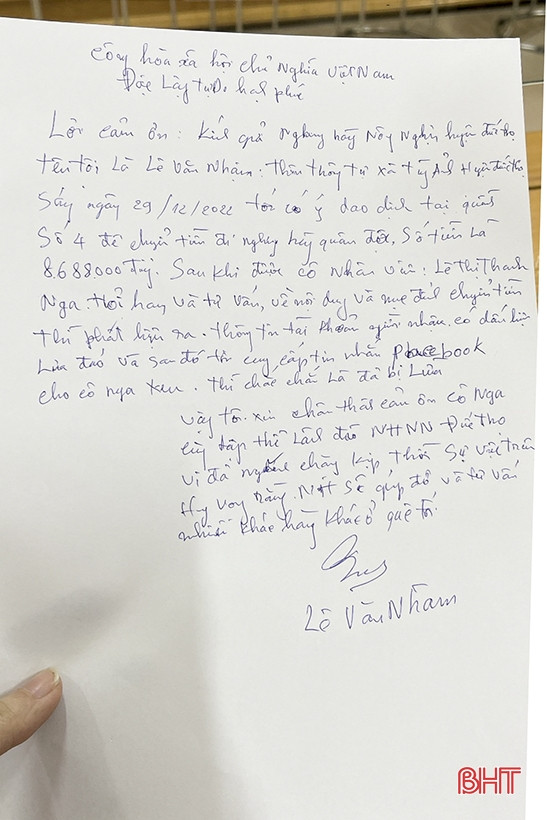 Cộng hòa xã hội chủ Nghĩa Việt Nam
Độc Lập tự Do hạnh phúc
Lời cảm ơn: Kính gửi Ngân hàng Nông Nghiệp huyện đức thọ
Tên tôi Là Lê Văn Nhậm: thôn thông tự xã tùng Ảnh Huyện đức thọ
Sáng ngày 29/12/2022 tôi có ý dao dịch tại quầy
Số 4 để chuyển tiền đi ngân hàng quân đội, Số tiền Là
8.688.000 đồng. Sau khi được cô Nhân viên: Lê Thị Thanh
Nga. Hỏi han và tư vấn, về nội dung và mục đích chuyển tiền
thì phát hiện ra. thông tin tài khoản người nhận có dấu hiệu
Lừa đảo và sau đó tôi cung cấp tin nhắn facebook
cho cô nga xem. thì chắc chắn Là đã bị Lừa
vậy tôi xin chân thành cảm ơn cô Nga
cùng tập thể Lãnh đạo NHNN Đức Thọ
vì đã ngăn chặng kịp thời Sự việc trên
Hy vọng rằng. NH Sẽ giúp đỡ và tư vấn
nhiều khách hàng khác ở quê tôi.
Lê Văn Nhậm
BHT